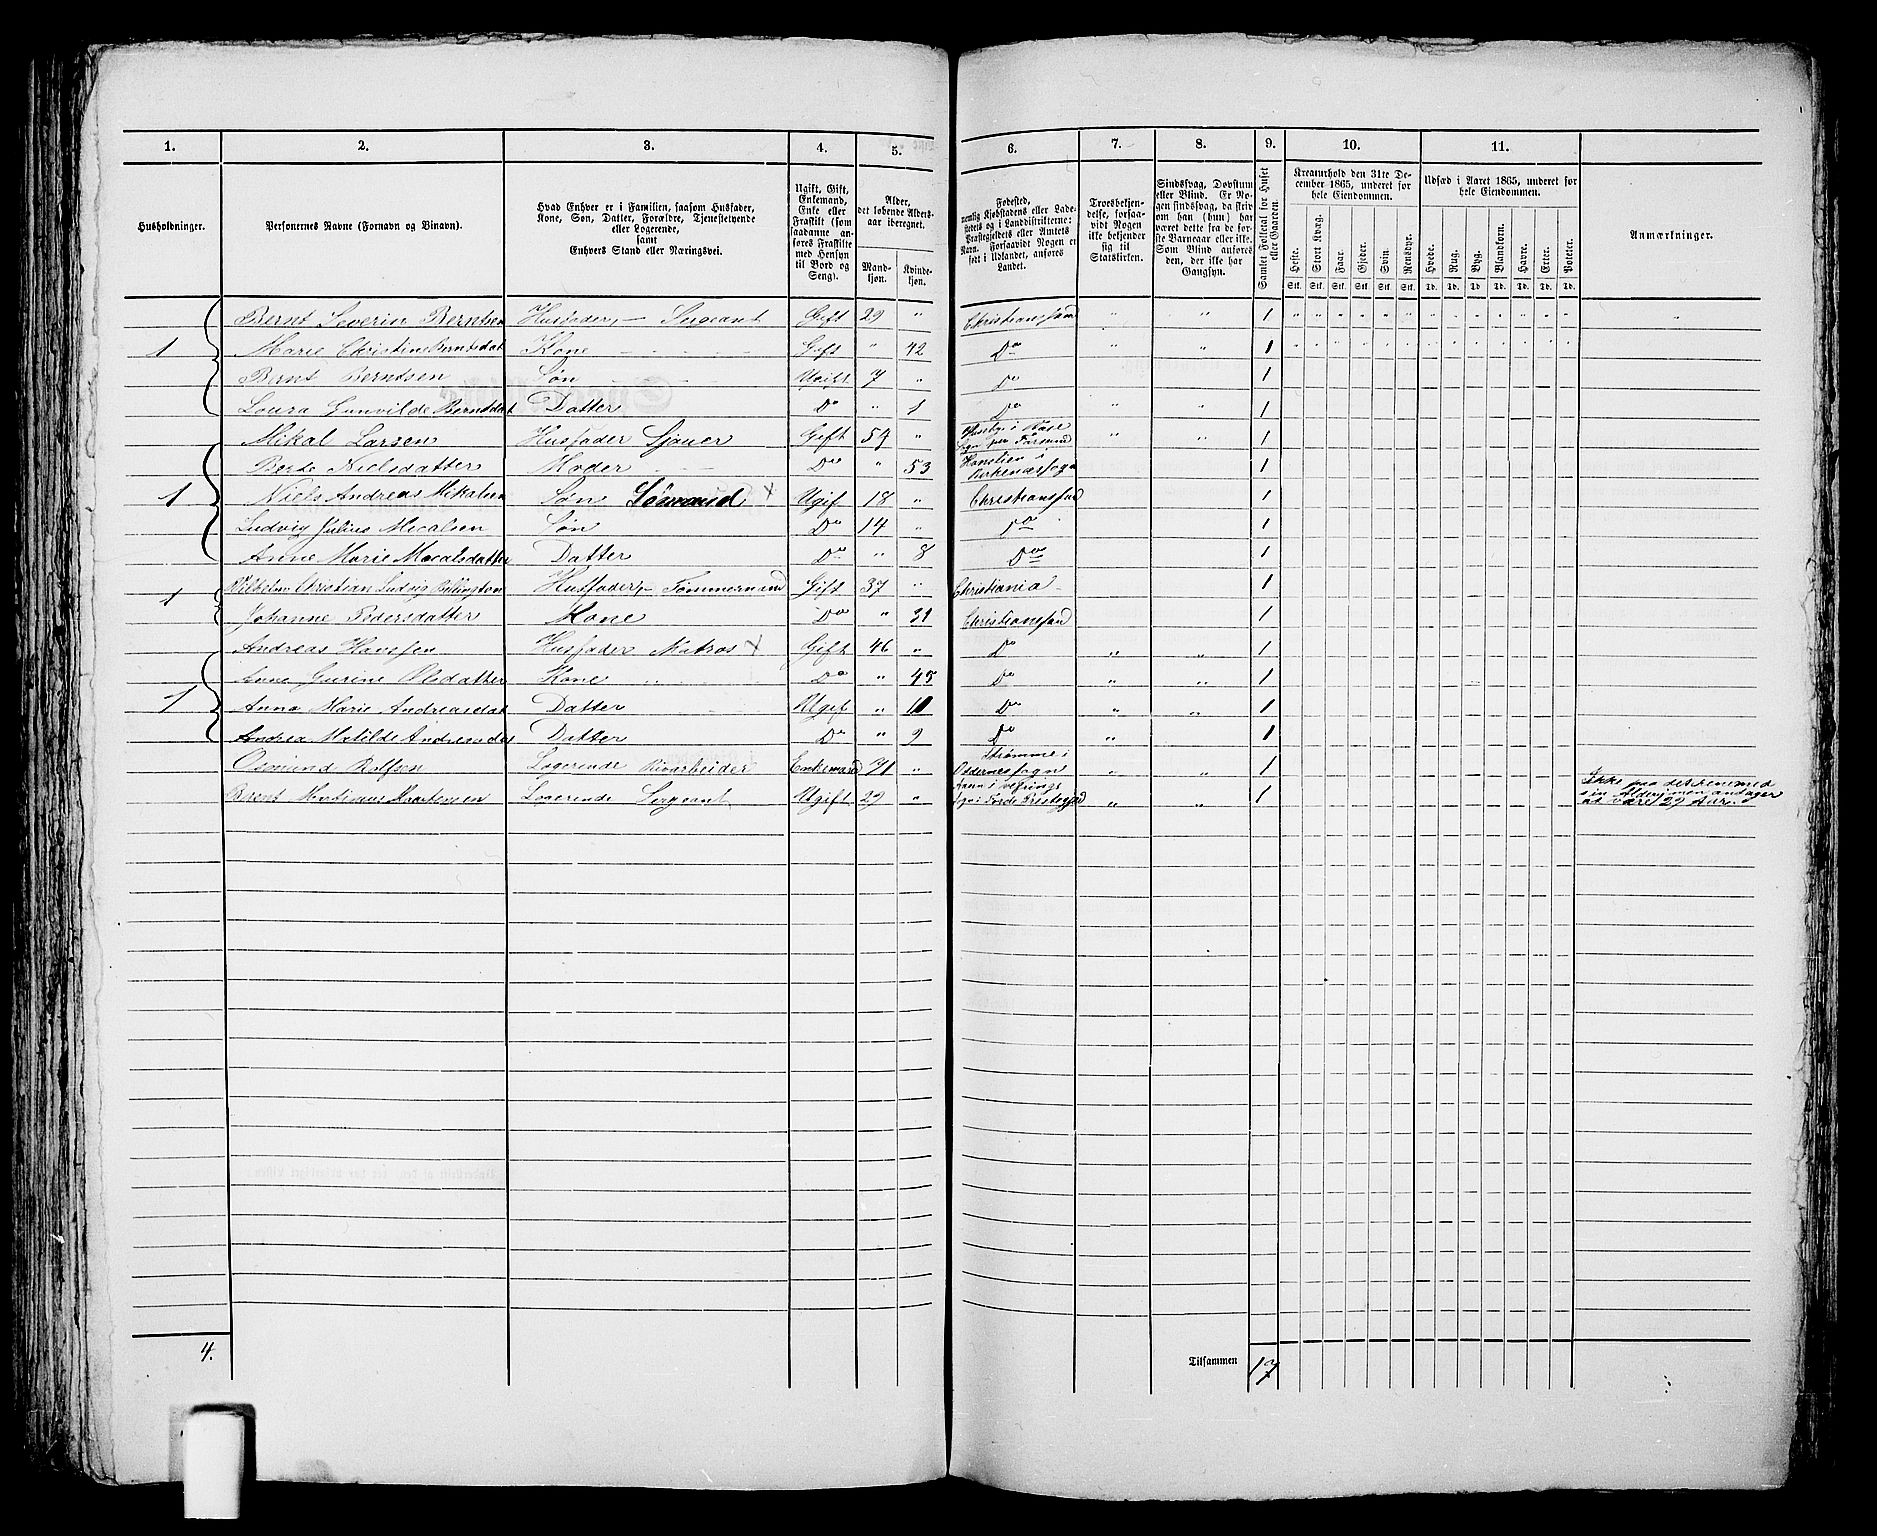 1. 2. 3. 4. 5. 6. 7. 8. 9. 10. 11.
Husholdninger.
Personernes Navne (Fornavn og Tilnavn).
Hvad Enhver er i Familien, saasom Husfader,
Kone, Søn, Datter, Forældre, Tjenestetyende
eller Logerende,
samt
Enhvers Stand eller Næringsvei.
Ugift, Gift,
Enkemand,
Enke eller
Fraskilt (som
saadanne an-
føres Fraskilte
med Hensyn
til Bord og
Seng).
Alder,
det løbende Alders-
aar iberegnet.
Mand-
kjøn.
Kvinde-
kjøn.
Fødested,
nemlig Kjøbstadens eller Lade-
stedets og i Landdistrikterne:
Præstegjeldets eller Amtets
Navn. Forsaavidt Nogen er
født i Udlandet, anføres
Landet.
Troesbekjen-
delse, forsaa-
vidt Nogen
ikke bekjender
sig til
Statskirken.
Sindssvag, Døvstum
eller Blind. Er No-
gen sindssvag, da skri-
ves om han (hun) har
været dette fra de før-
ste Barneaar eller ikke.
Som Blind anføres
den, der ikke har
Gangsyn.
Samlet Folketal for Huset
eller Gaarden.
Kreaturhold den 31te De-
cember 1865, underet for
hele Eiendommen.
Heste. Stort Kvæg. Faar. Gjeder. Svin. Rensdyr.
Stk. Stk. Stk. Stk. Stk. Stk.
Udsæd i Aaret 1865, underet for
hele Eiendommen.
Hvede. Rug. Byg. Blandkorn. Havre. Erter. Poteter.
Td. Td. Td. Td. Td. Td. Td.
Anmærkninger.
Bernt Severin Berntsen Husfader, - Sergeant Gift 29 " Christianssand " " 1
1 Marie Christine Berntsdat Kone Gift " 42 Do " " 1
Bernt Berntsen Søn Ugift 7 " Do 1
Loura Gunvilde Berntsdat Datter Do " 1 Do " " 1
Mikal Larsen Husfader Sjouer Gift 54 " " " 1
Berte Nielsdatter Moder Do " 53 1
1 Niels Andreas Mikalsen Søn Sømand × Ugif 18 " Christianssand 1
Ludvig Julius Micalsen Søn Do 14 " Do 1
Anne Marie Mocalsdatter Datter Do " 8 Do 1
1 Wilhelm Christian Ludvig Billington Husfader, - Tømmermand Gift 37 " Christiania 1
Johanne Pedersdatter Kone Do " 31 Christianssand 1
Andreas Havesen Husfader Matros × Gift 46 " Do " " 1
Anne Gurine Olsdatter Kone " Do " 45 Do " " 1
1 Anna Marie Andreasdat Datter Ugif " 11 Do " " 1
Andrea Matilde Andreasdat Datter Do " 9 Do 1
Osmund Rolfsen Logerende Bivarbeider Enkemand 71 " Strømme i Oddernessogn " " 1
Bernt Martinius Logerende Sergeant Ugift 29 " " " 1
Ikke paa det rene med
sin Alder, men andager
at være 29 Aar
4.
Tilsammen 17